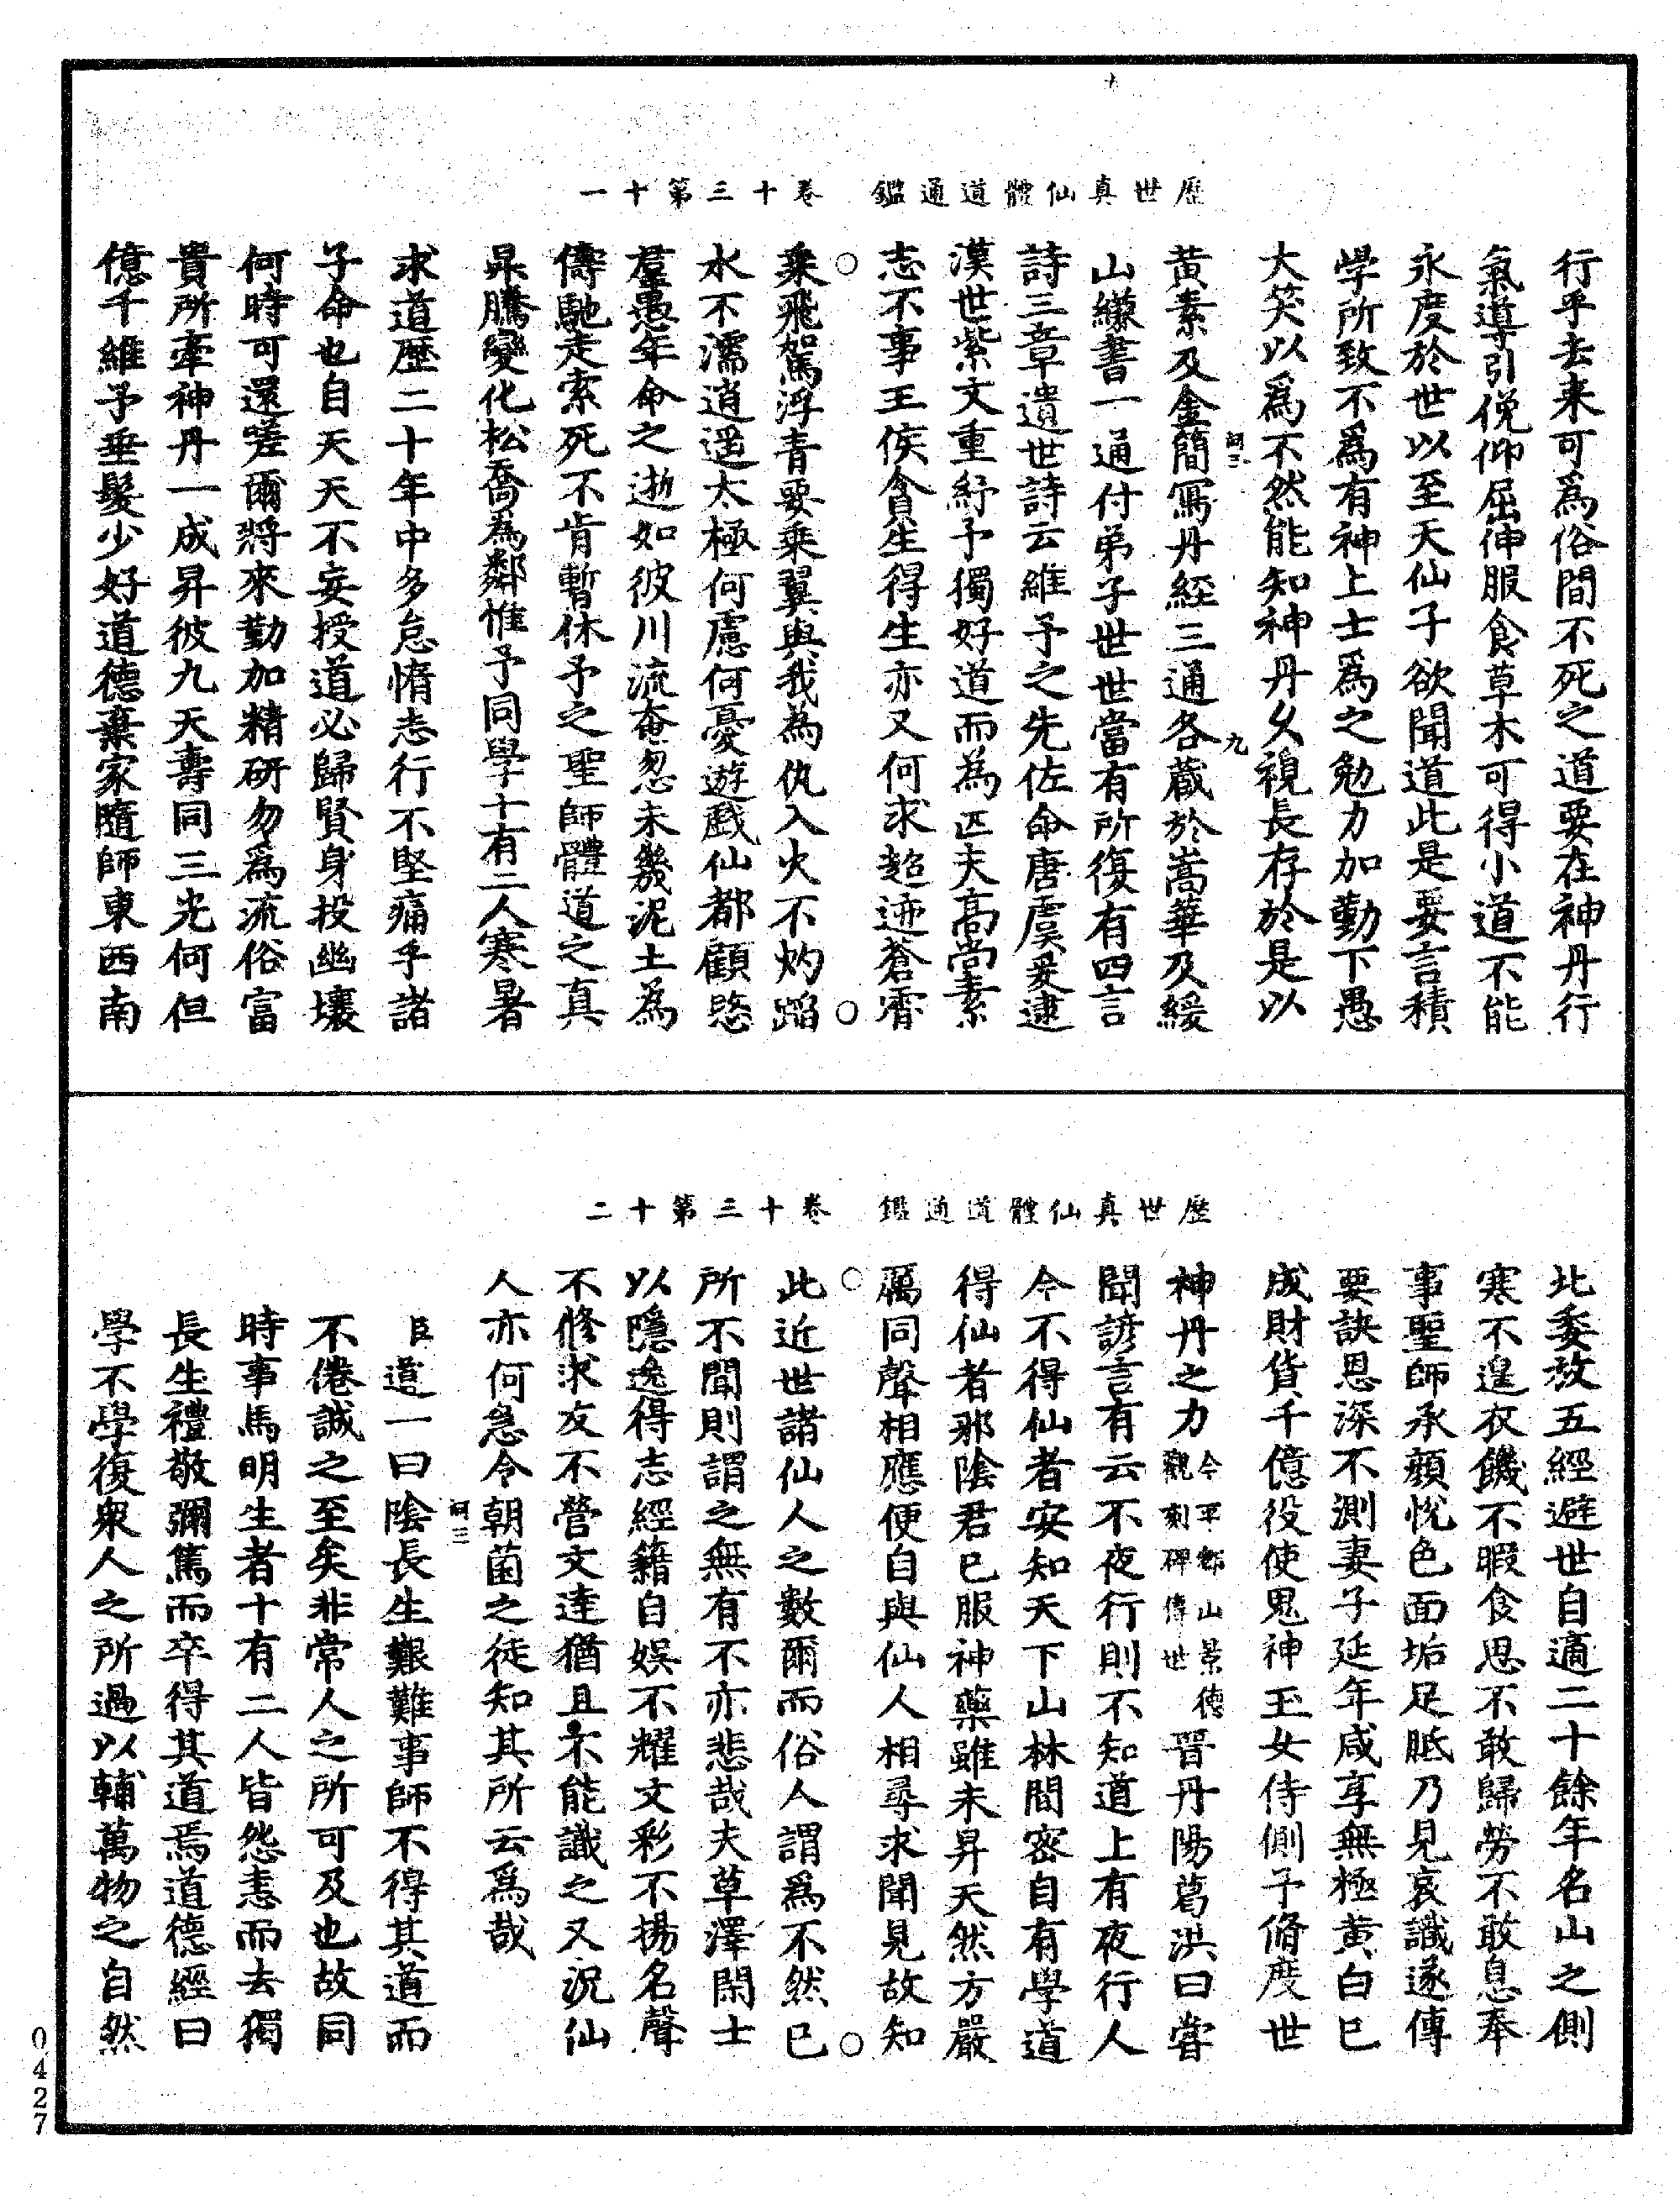 歷世真仙體道通鑑　卷十三第十一
行乎去来可爲俗間不死之道要在神丹行
氣導引俛仰屈伸服食草木可得小道不能
永度於世以至天仙子欲聞道此是要言積
學所致不爲有神上士爲之勉力加勤下愚
大笑以爲不然能知神丹久視長存於是以
訶三　九
黃素及金簡寫丹經三通各蔵於嵩華及緩
山縑書一通付弟子世世當有所復有四言
詩三章遺世詩云維予之先佐命唐虞爰逮
漢世紫文重紆予獨好道而為匹夫高尚素
志不事王侯貪生得生亦又何求超迹蒼霄
乗飛駕浮青要乗翼與我為仇入火不灼蹈
水不濡逍遥太極何慮何憂遊戲仙都顧愍
羣愚年命之逝如彼川流奄忽未幾泥土為
儔馳走索死不肯暫休予之聖師體道之真
昇騰變化松喬為鄰惟予同學十有二人寒暑
求道歷二十年中多怠惰志行不堅痛乎諸
子命也自天天不妄授道必歸賢身投幽壤
何時可還嗟爾將來勤加精研勿爲流俗富
貴所牽神丹一成昇彼九天壽同三光何但
億千維予垂髮少好道德棄家隨師東西南
歷世真仙體道通鑑　卷十三第十二
北委放五經避世自適二十餘年名山之側
寒不遑衣饑不暇食思不敢歸勞不敢息奉
事聖師承顏悅色面垢足胝乃見哀識遂傳
要訣恩深不測妻子延年咸享無極黄白巳
成財貨千億役使鬼神玉女侍側予脩度世
神丹之力今平都山景德觀刻碑傳世晉丹陽葛洪曰嘗
聞諺言有云不夜行則不知道上有夜行人
今不得仙者安知天下山林間密自有學道
得仙者邪陰君已服神藥雖未昇天然方嚴
厲同聲相應便自與仙人相尋求聞見故知
此近世諸仙人之數爾而俗人謂爲不然已
所不聞則謂之無有不亦悲哉夫草澤閑士
以隱逸得志經籍自娛不耀文彩不揚名聲
不脩求友不營文達猶且不能識之又況仙
人亦何急令朝菌之徒知其所云爲哉
訶三
臣道一曰陰長生艱難事師不得其道而
不倦誠之至矣非常人之所可及也故同
時事馬明生者十有二人皆怨恚而去獨
長生禮敬彌篤而卒得其道焉道德經曰
學不學復衆人之所過以輔萬物之自然
0427